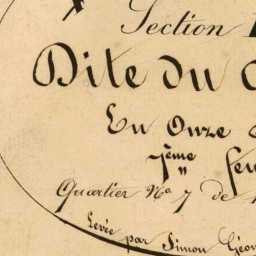 Section
Dite du
En Onze
7ème
Quartier No 7 de
Levée par Simon Géom